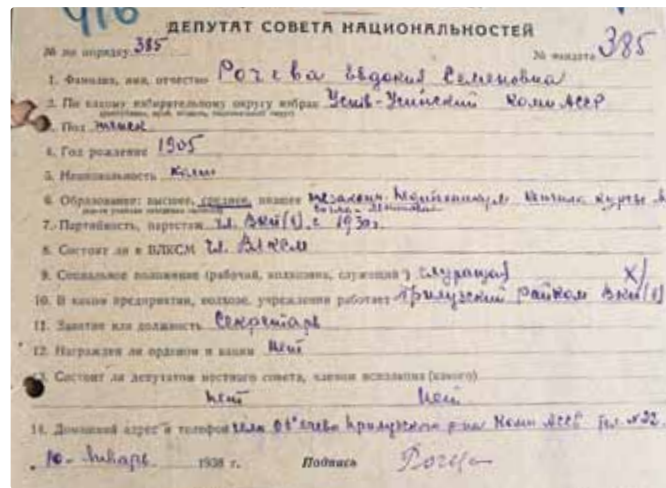 416
ДЕПУТАТ СОВЕТА НАЦИОНАЛЬНОСТЕЙ
№ по порядку 385 № мандата 385
1. Фамилия, имя, отчество Рочева Евдокия Семеновна
2. По какому избирательному округу избран Усть-Усинский Коми АССР
3. Пол женск
4. Год рождения 1905
5. Национальность Коми
6. Образование: высшее, среднее, низшее незаконч. курсы
7. Партийность, партстаж чл. ВКП(б) с 1930 г.
8. Состоит ли в ВЛКСМ чл. ВЛКСМ
9. Социальное положение (рабочий, колхозник, служащий) служащая х)
10. В каком предприятии, колхозе, учреждении работает Прилузский Райком ВКП(б)
11. Занятие или должность Секретарь
12. Награжден ли орденом и каким Нет
13. Состоит ли депутатом местного совета, членом исполкома (какого)
Нет Нет
14. Домашний адрес и телефон село Об'ячево Прилузского р-на Коми АССР тел. №22.
10 Январь 1938 г. Подпись Рочева